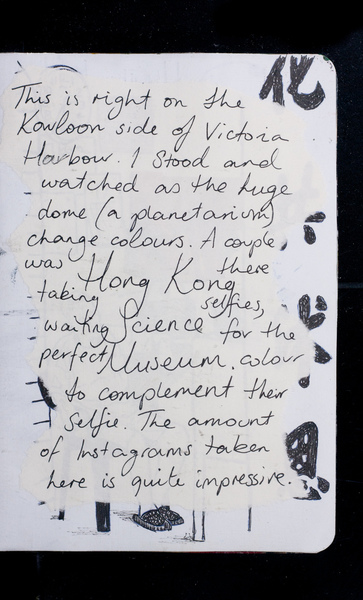 化
This is right on the
Kowloon side of Victoria
Harbour. I stood and
watched as the huge
dome (a planetarium)
change colours. A couple
was there
Hong Kong
taking selfies,
waiting Science for the
perfect Museum. colour
to complement their
selfie. The amount
of Instagrams taken
here is quite impressive.